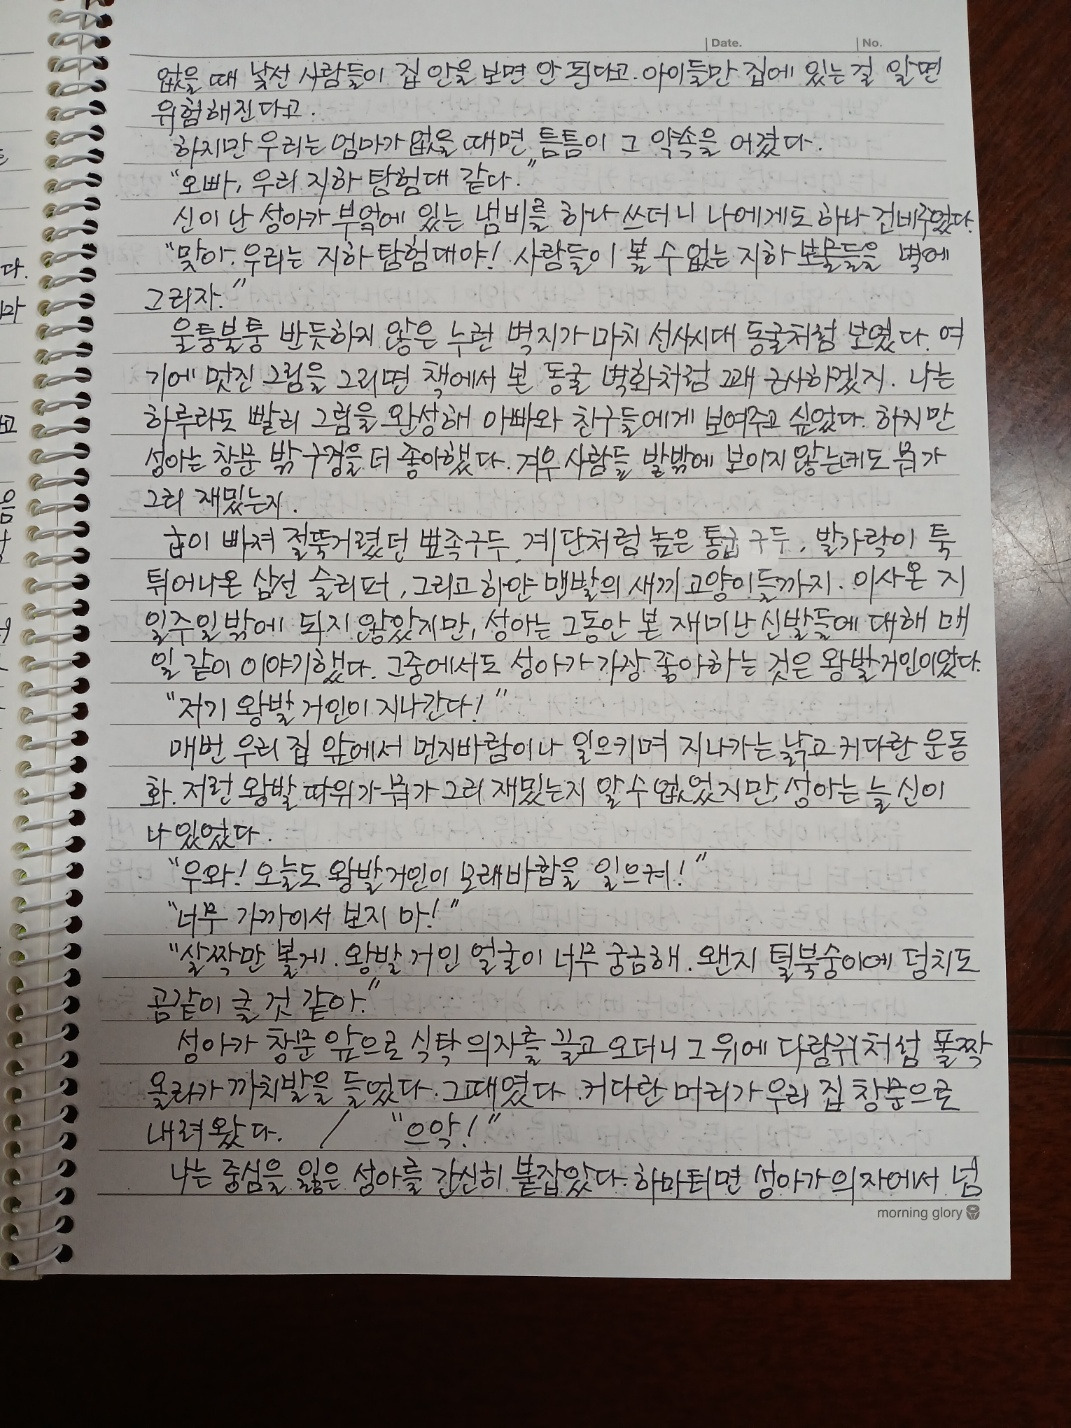 Date. No.
없을 때 낯선 사람들이 집 안을 보면 안 된다고. 아이들만 집에 있는 걸 알면
위험해진다고.
하지만 우리는 엄마가 없을 때면 틈틈이 그 약속을 어겼다.
"오빠, 우리 지하 탐험대 같다."
신이 난 성아가 부엌에 있는 냄비를 하나 쓰더니 나에게도 하나 건네주었다.
"맞아. 우리는 지하 탐험대야! 사람들이 볼 수 없는 지하 보물들을 벽에
그리자."
울퉁불퉁 반듯하지 않은 누런 벽지가 마치 선사시대 동굴처럼 보였다. 여
기에 멋진 그림을 그리면 책에서 본 동굴 벽화처럼 꽤 근사하겠지. 나는
하루라도 빨리 그림을 완성해 아빠와 친구들에게 보여주고 싶었다. 하지만
성아는 창문 밖 구경을 더 좋아했다. 겨우 사람들 발밖에 보이지 않는데도 뭐가
그리 재밌는지.
굽이 빠져 절뚝거렸던 뾰족구두, 계단처럼 높은 통굽 구두, 발가락이 툭
튀어나온 삼선 슬리퍼, 그리고 하얀 맨발의 새끼 고양이들까지. 이사온 지
일주일 밖에 되지 않았지만, 성아는 그동안 본 재미난 신발들에 대해 매
일 같이 이야기했다. 그중에서도 성아가 가장 좋아하는 것은 왕발 거인이었다.
"저기 왕발 거인이 지나간다!"
매번 우리 집 앞에서 먼지바람이나 일으키며 지나가는 낡고 커다란 운동
화. 저런 왕발 따위가 뭐가 그리 재밌는지 알 수 없었지만, 성아는 늘 신이
나 있었다.
"우와! 오늘도 왕발 거인이 모래바람을 일으켜!"
"너무 가까이서 보지 마!"
"살짝만 볼게. 왕발 거인 얼굴이 너무 궁금해. 왠지 털북숭이에 덩치도
곰같이 클 것 같아."
성아가 창문 앞으로 식탁 의자를 끌고 오더니 그 위에 다람쥐처럼 폴짝
올라가 까치발을 들었다. 그때였다. 커다란 머리가 우리 집 창문으로
내려왔다. / "으악!"
나는 중심을 잃은 성아를 간신히 붙잡았다. 하마터면 성아가 의자에서 넘
morning glory